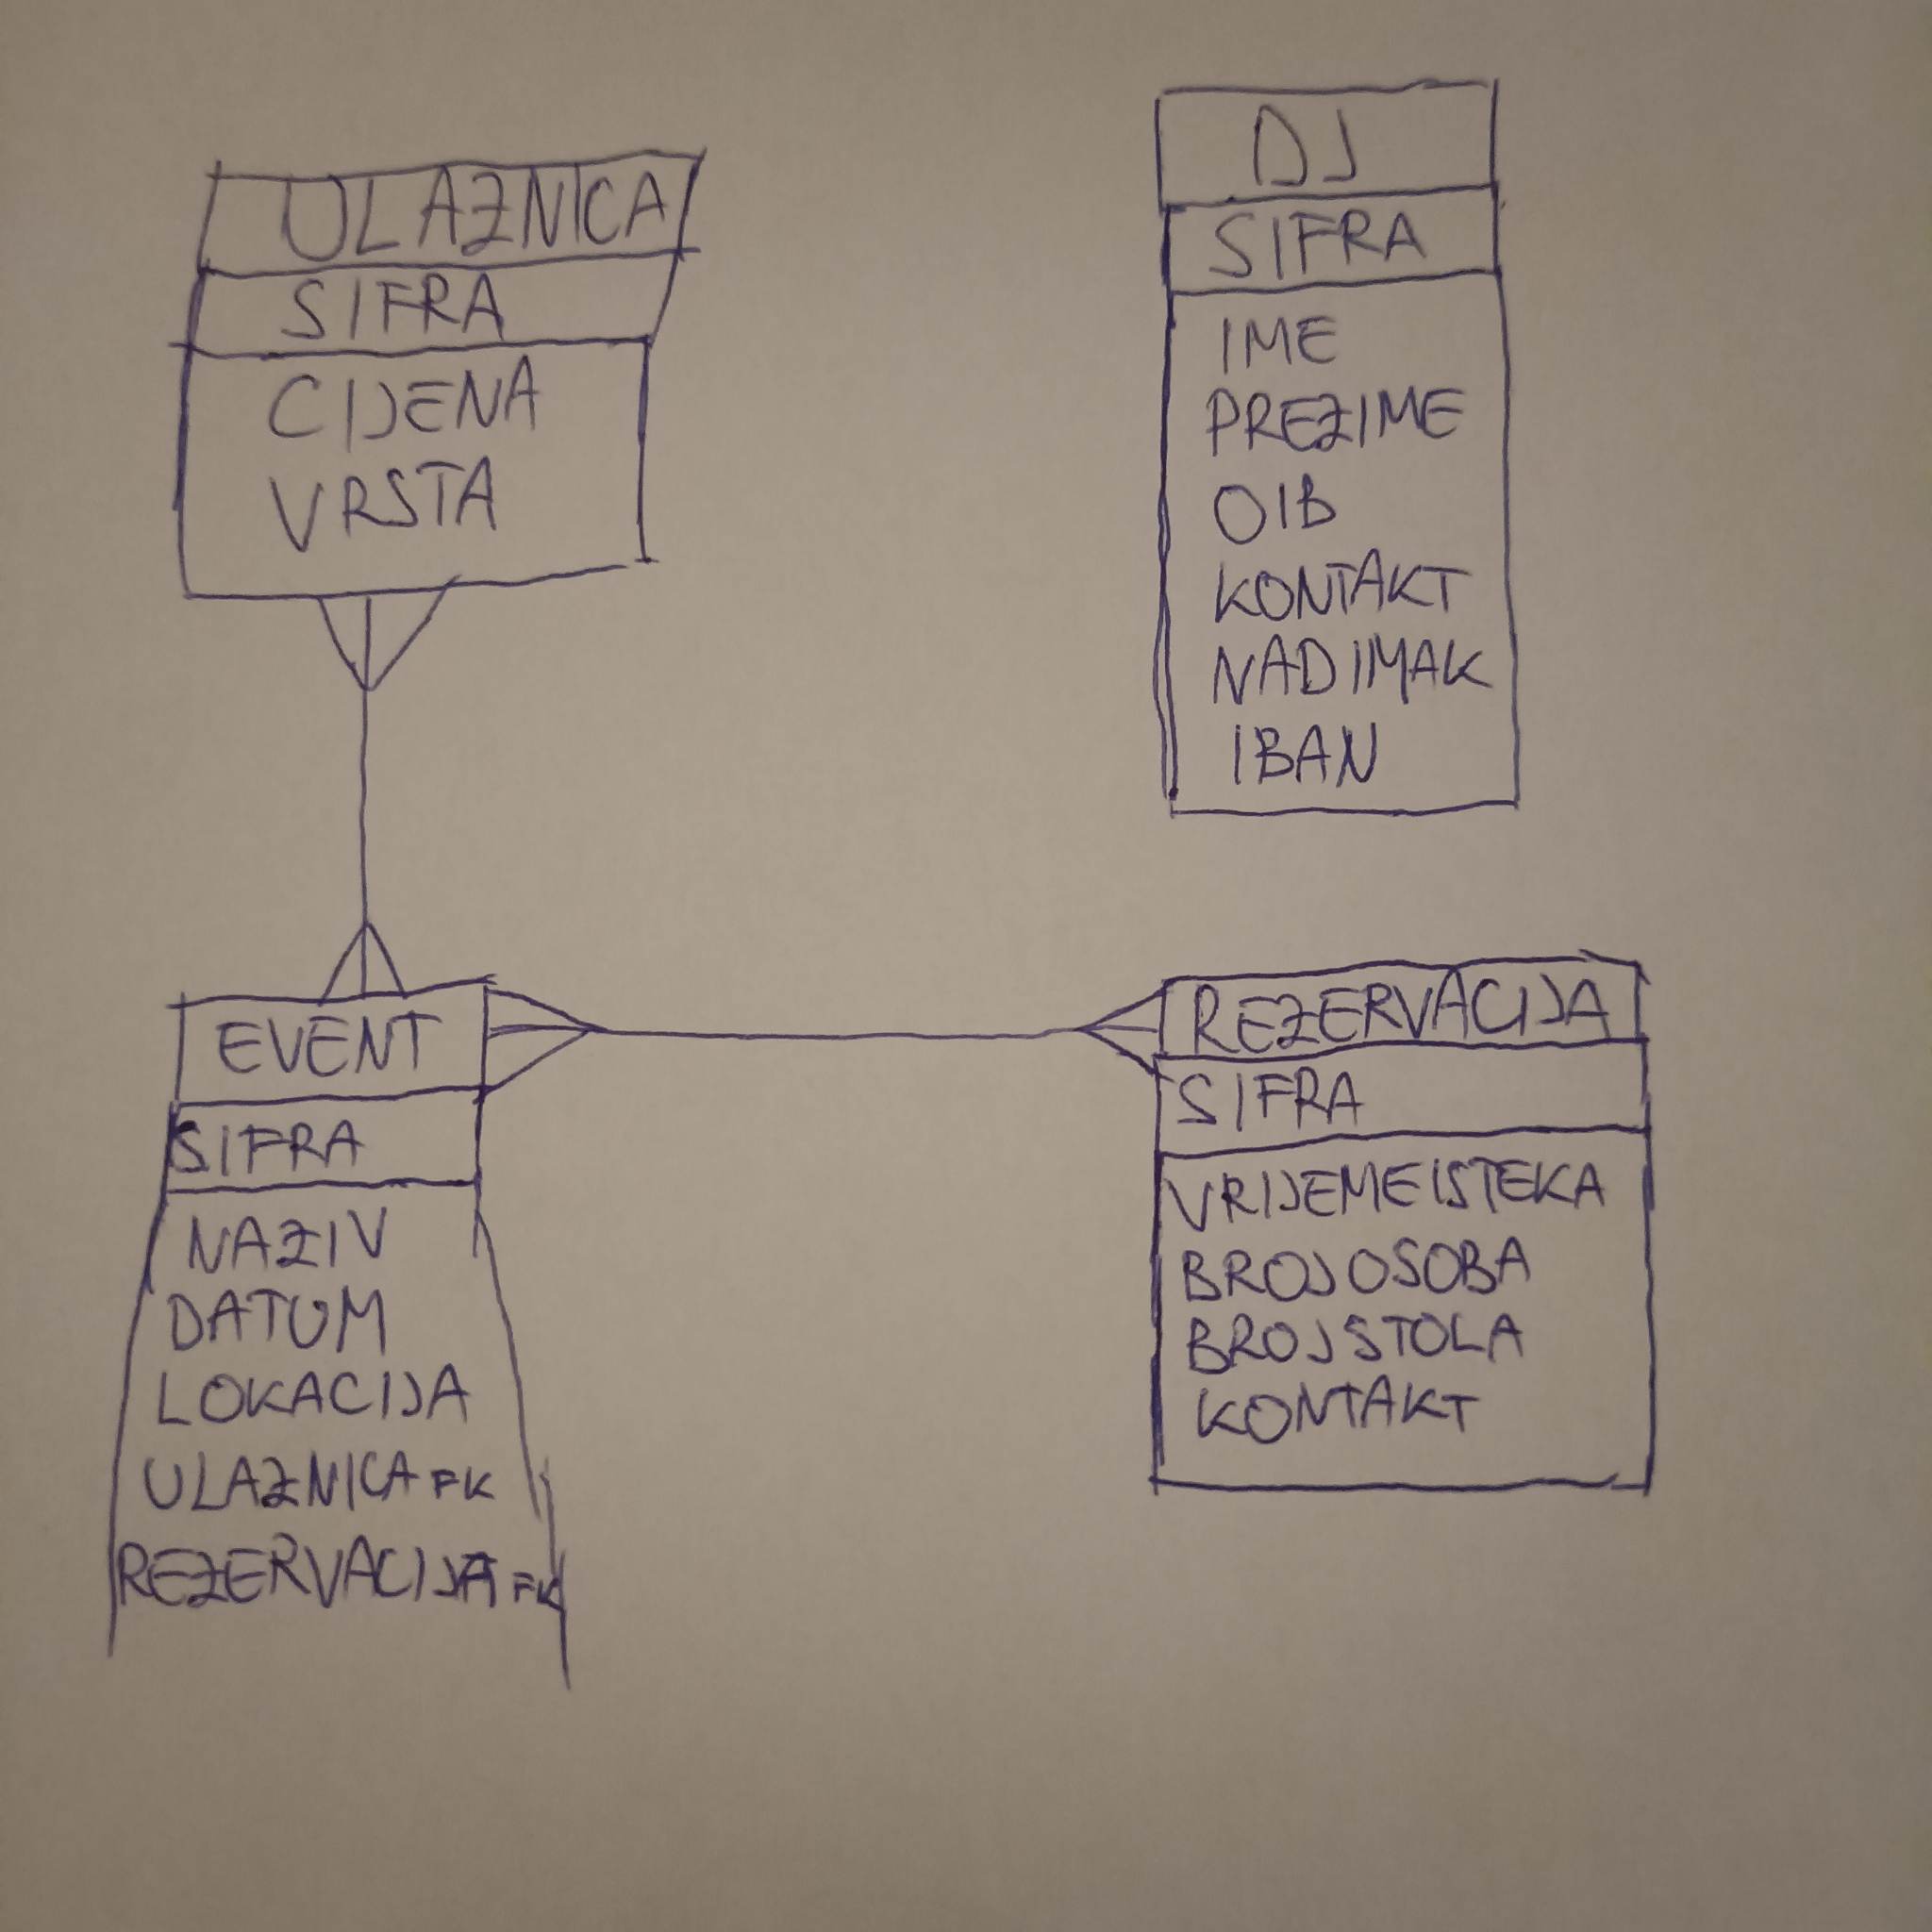 ULAZNICA
SIFRA
CIJENA
VRSTA
DJ
SIFRA
IME
PREZIME
OIB
KONTAKT
NADIMAK
IBAN
EVENT
SIFRA
NAZIV
DATUM
LOKACIJA
ULAZNICA FK
REZERVACIJA FK
REZERVACIJA
SIFRA
VRIJEMEISTEKA
BROJOSOBA
BROJSTOLA
KONTAKT